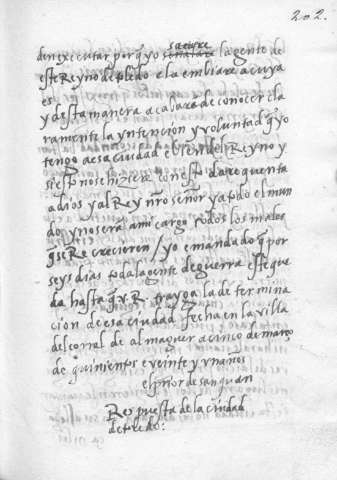 202.
den executar porq̃ yo sacare la gente de
este Reyno de toledo e la embiare a cuya
es
y desta manera acabara de conocer cla
ramente la yntencion y voluntad q̃ yo
tengo a esa ciudad e bien del Reyno y
si esto no se hiziere con esto dare quenta
a dios y al Rey nr̃o señor y a todo el mun
do y no sera a mi cargo todos los males
q̃ se Recrecieren / yo e mandado q̃ por
seys dias toda la gente de guerra este que
da hasta q̃ v. R. trayga la determina
cion de esa ciudad fecha en la villa
del corral de almaguer a cinco de março
de quinientos e veinte y un años
el prior de san juan
Respuesta de la ciudad
de toledo: